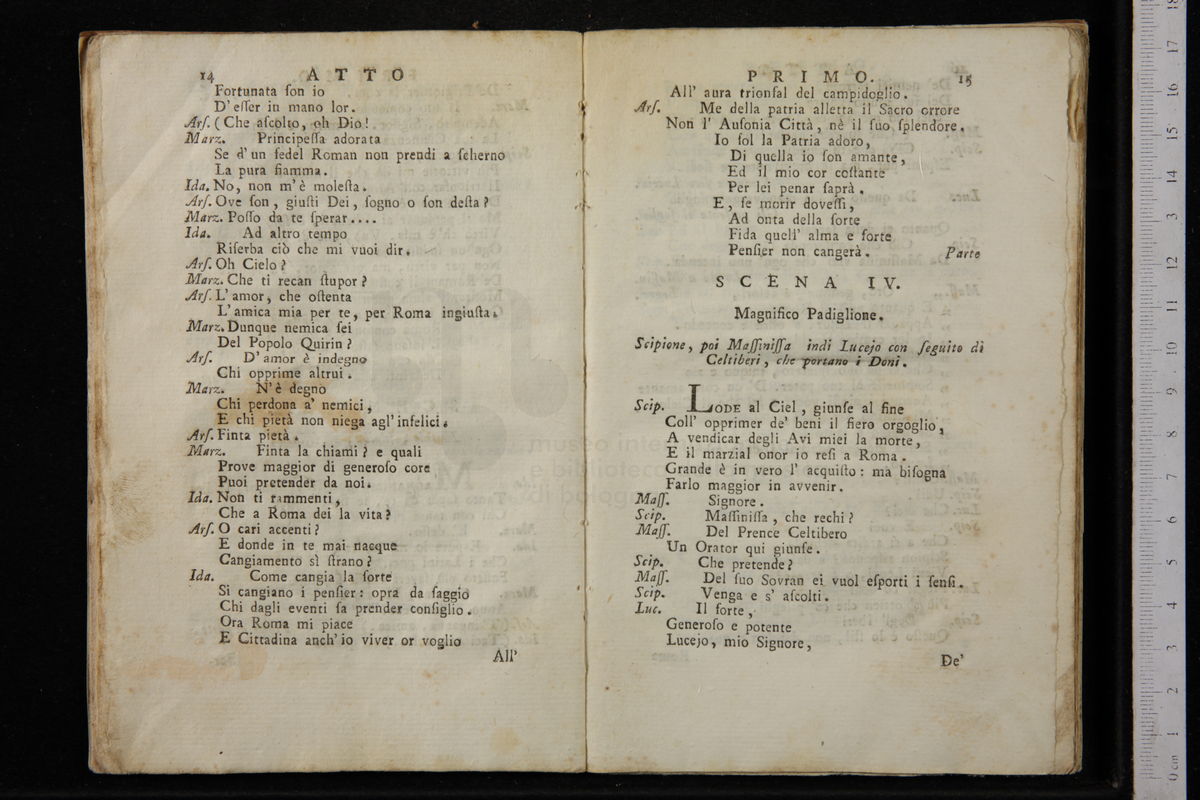 14 ATTO
Fortunata ſon io
D' eſſer in mano lor.
Arſ. (Che aſcolto, oh Dio!
Marz. Principeſſa adorata
Se d' un fedel Roman non prendi a ſcherno
La pura fiamma.
Ida. No, non m' è moleſta.
Arſ. Ove ſon, giuſti Dei, ſogno o ſon deſta?
Marz. Poſſo da te ſperar....
Ida. Ad altro tempo
Riſerba ciò che mi vuoi dir.
Arſ. Oh Cielo?
Marz. Che ti recan ſtupor?
Arſ. L' amor, che oſtenta
L' amica mia per te, per Roma ingiuſta.
Marz. Dunque nemica ſei
Del Popolo Quirin?
Arſ. D' amor è indegno
Chi opprime altrui.
Marz. N' è degno
Chi perdona a' nemici,
E chi pietà non niega agl' infelici.
Arſ. Finta pietà.
Marz. Finta la chiami? e quali
Prove maggior di generoſo core
Puoi pretender da noi.
Ida. Non ti rammenti,
Che a Roma dei la vita?
Arſ. O cari accenti?
E donde in te mai nacque
Cangiamento sì ſtrano?
Ida. Come cangia la ſorte
Si cangiano i penſier: opra da ſaggio
Chi dagli eventi ſa prender conſiglio.
Ora Roma mi piace
E Cittadina anch' io viver or voglio
All'
PRIMO. 15
All' aura trionfal del campidoglio.
Arſ. Me della patria alletta il Sacro orrore
Non l' Auſonia Città, nè il ſuo ſplendore.
Io ſol la Patria adoro,
Di quella io ſon amante,
Ed il mio cor coſtante
Per lei penar ſaprà.
E, ſe morir doveſſi,
Ad onta della ſorte
Fida quell' alma e forte
Penſier non cangerà. Parte
SCENA IV.
Magnifico Padiglione.
Scipione, poi Maſſiniſſa indi Lucejo con ſeguito di
Celtiberi, che portano i Doni.
Scip. LODE al Ciel, giunſe al fine
Coll' opprimer de' beni il fiero orgoglio,
A vendicar degli Avi miei la morte,
E il marzial onor io reſi a Roma.
Grande è in vero l' acquiſto: ma biſogna
Farlo maggior in avvenir.
Maſſ. Signore.
Scip. Maſſiniſſa, che rechi?
Maſſ. Del Prence Celtibero
Un Orator qui giunſe.
Scip. Che pretende?
Maſſ. Del ſuo Sovran ei vuol eſporti i ſenſi.
Scip. Venga e s' aſcolti.
Luc. Il forte,
Generoſo e potente
Lucejo, mio Signore,
De'